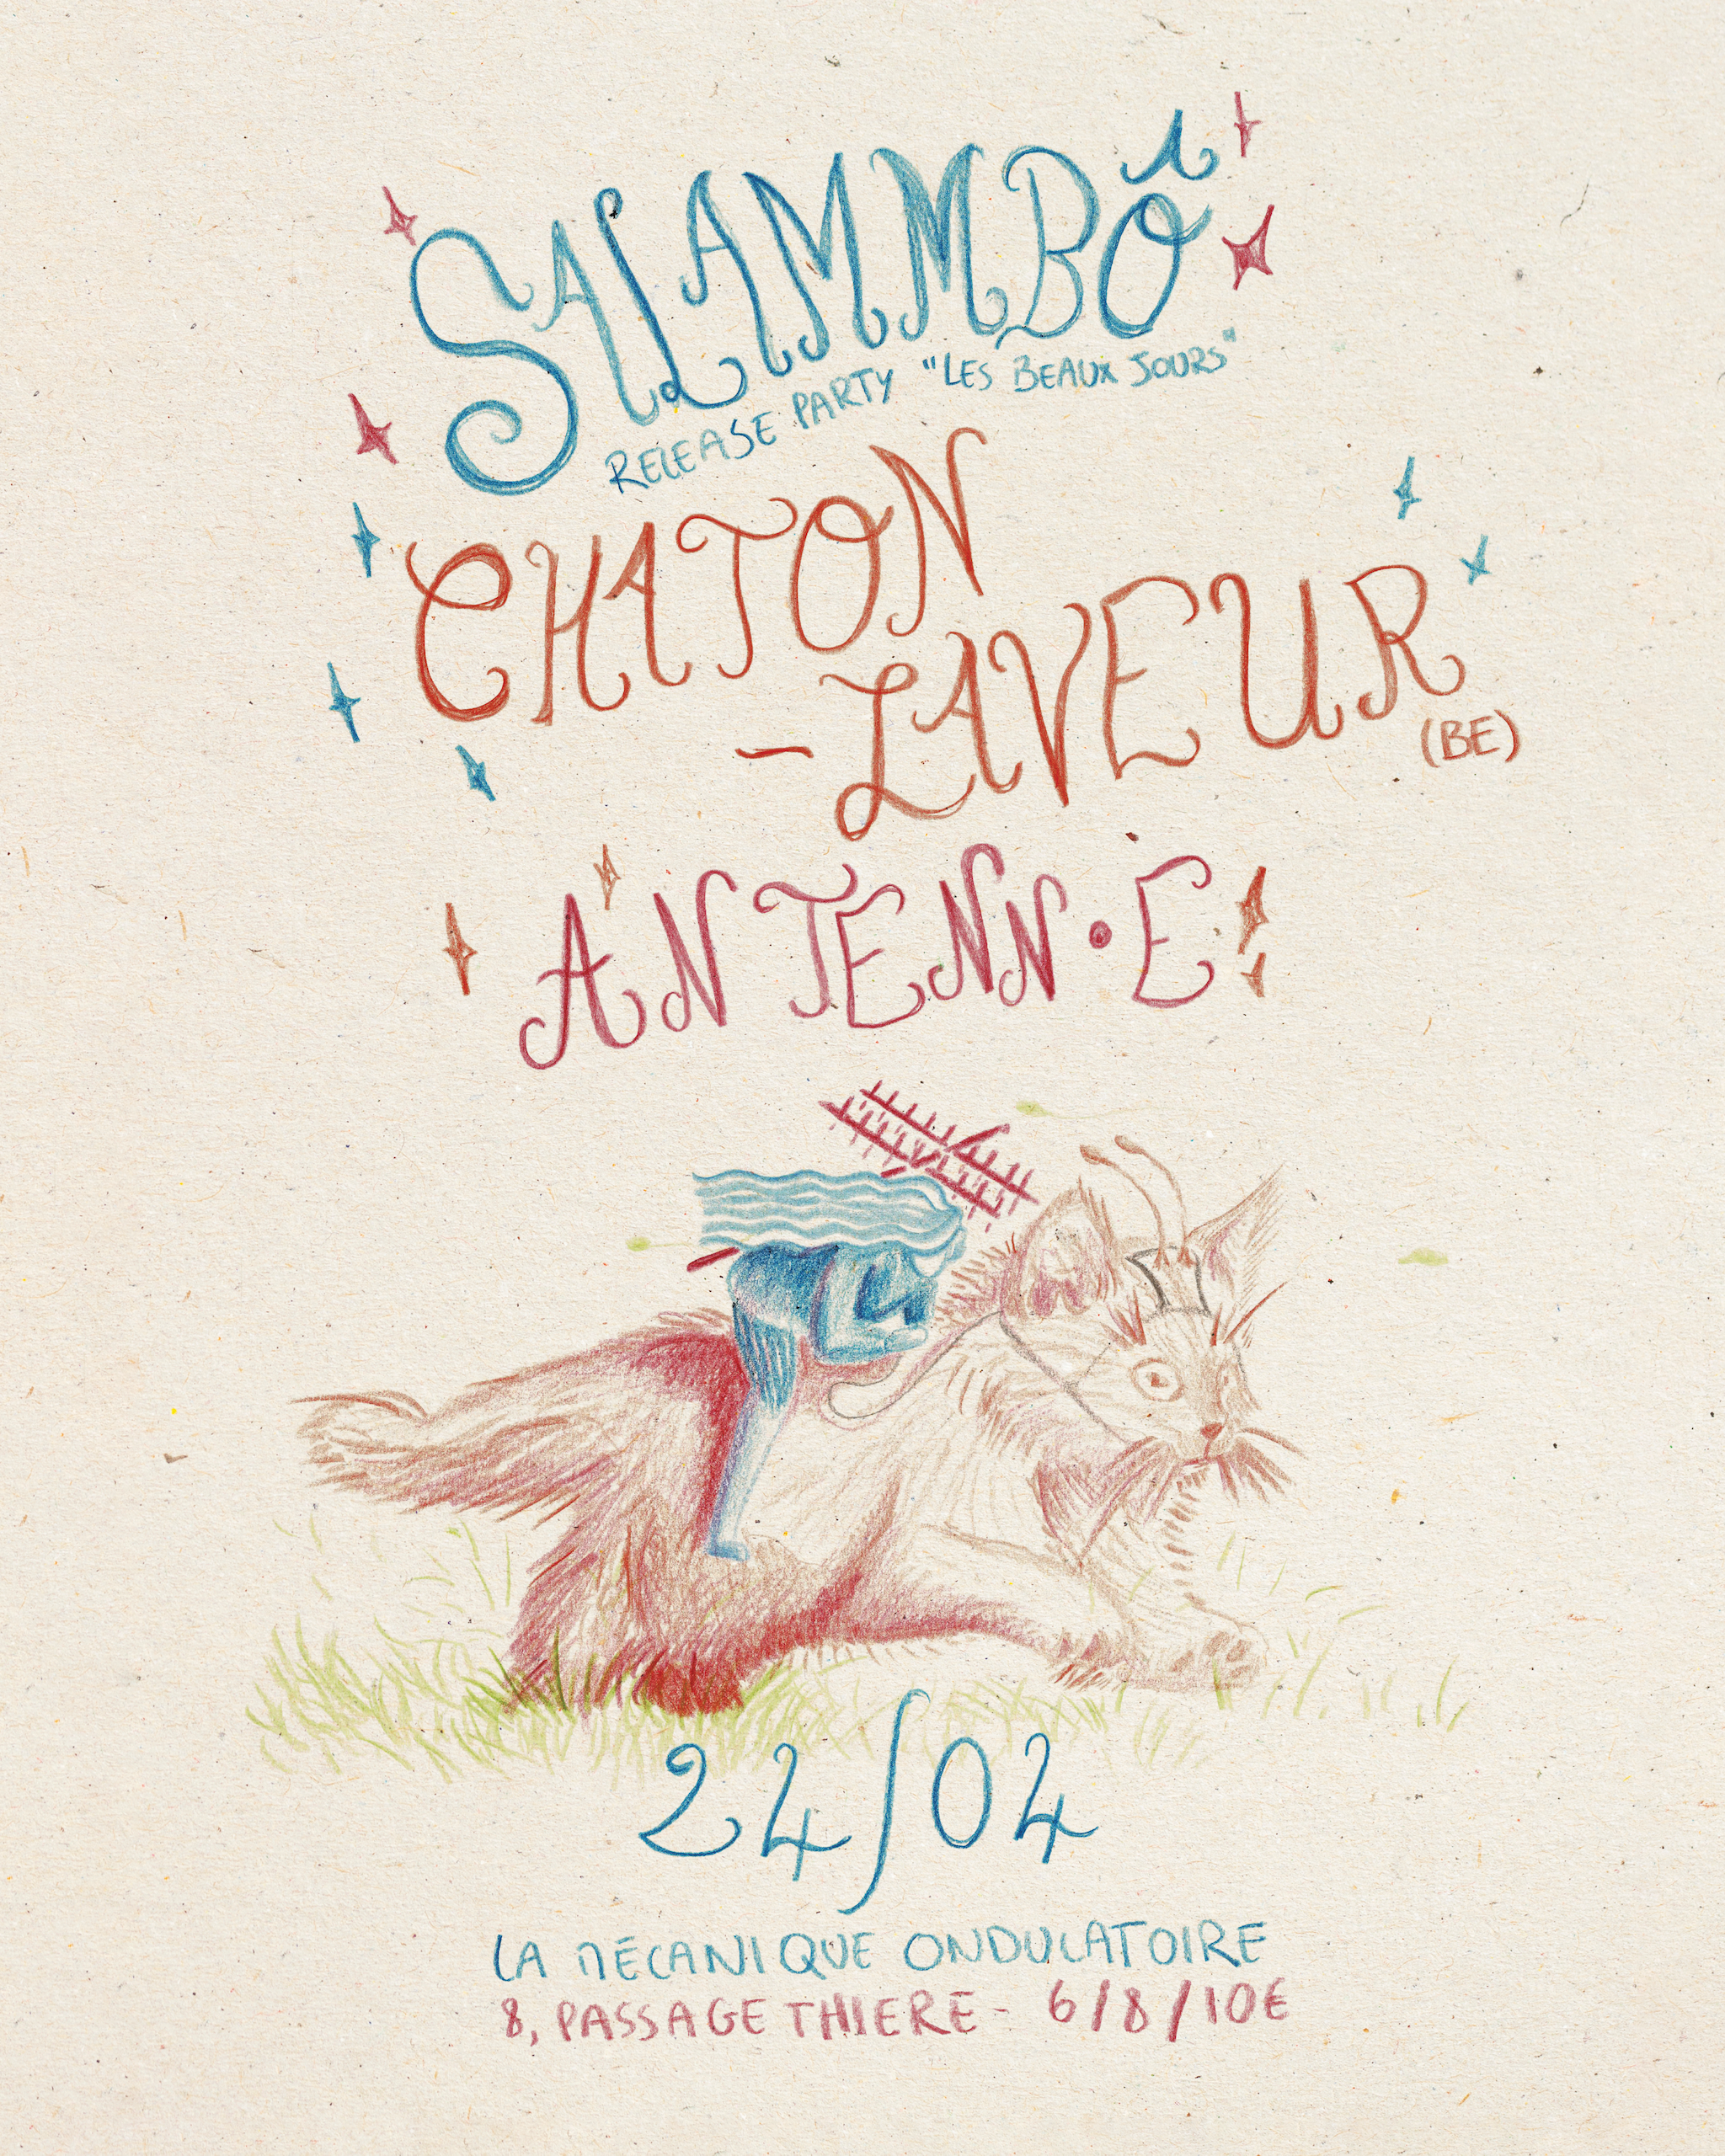 SALAMMBÔ
RELEASE PARTY "LES BEAUX JOURS"
CHATON
-LAVEUR
(BE)
ANTENN•E
24/04
LA MÉCANIQUE ONDULATOIRE
8, PASSAGE THIERE - 6/8/10€